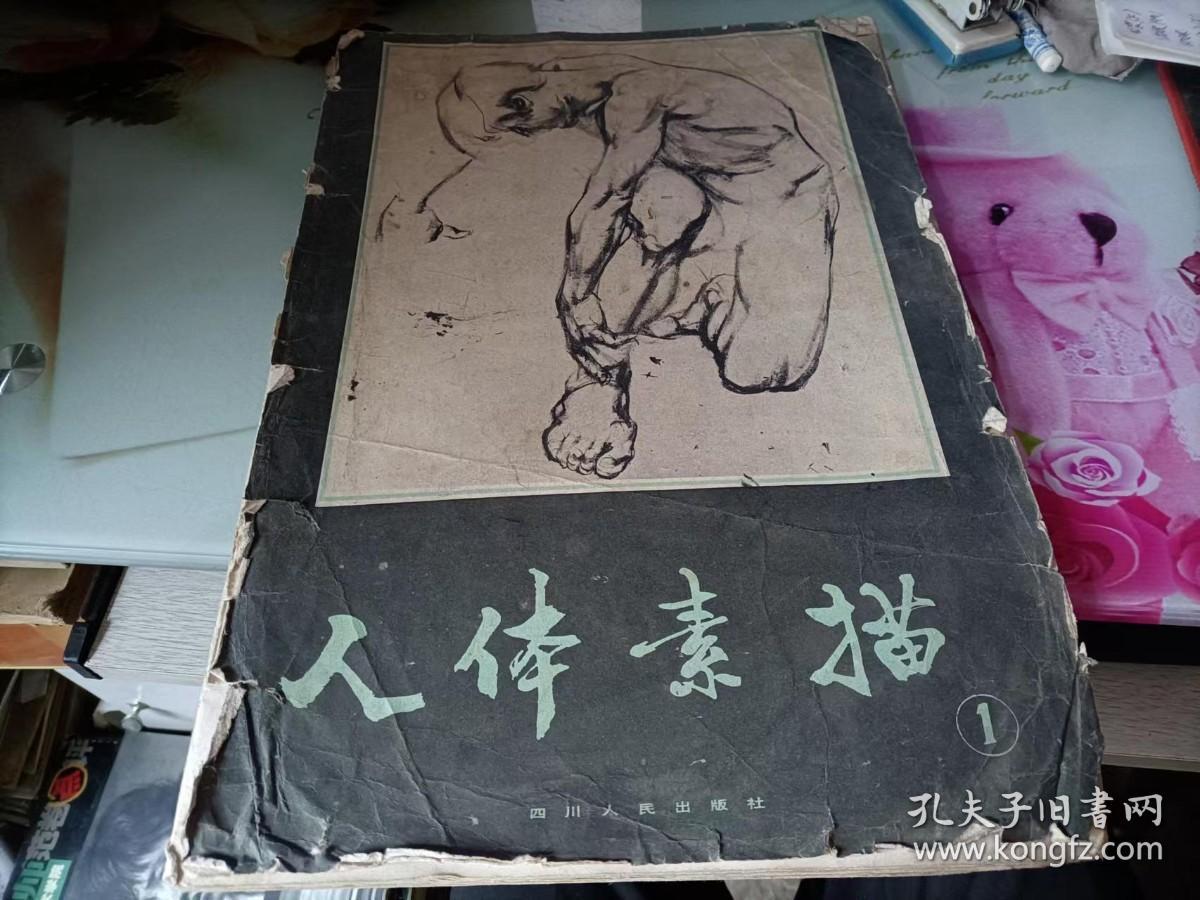 from the
day
forward
人体素描
1
四川人民出版社
孔夫子旧书网
www.kongfz.com